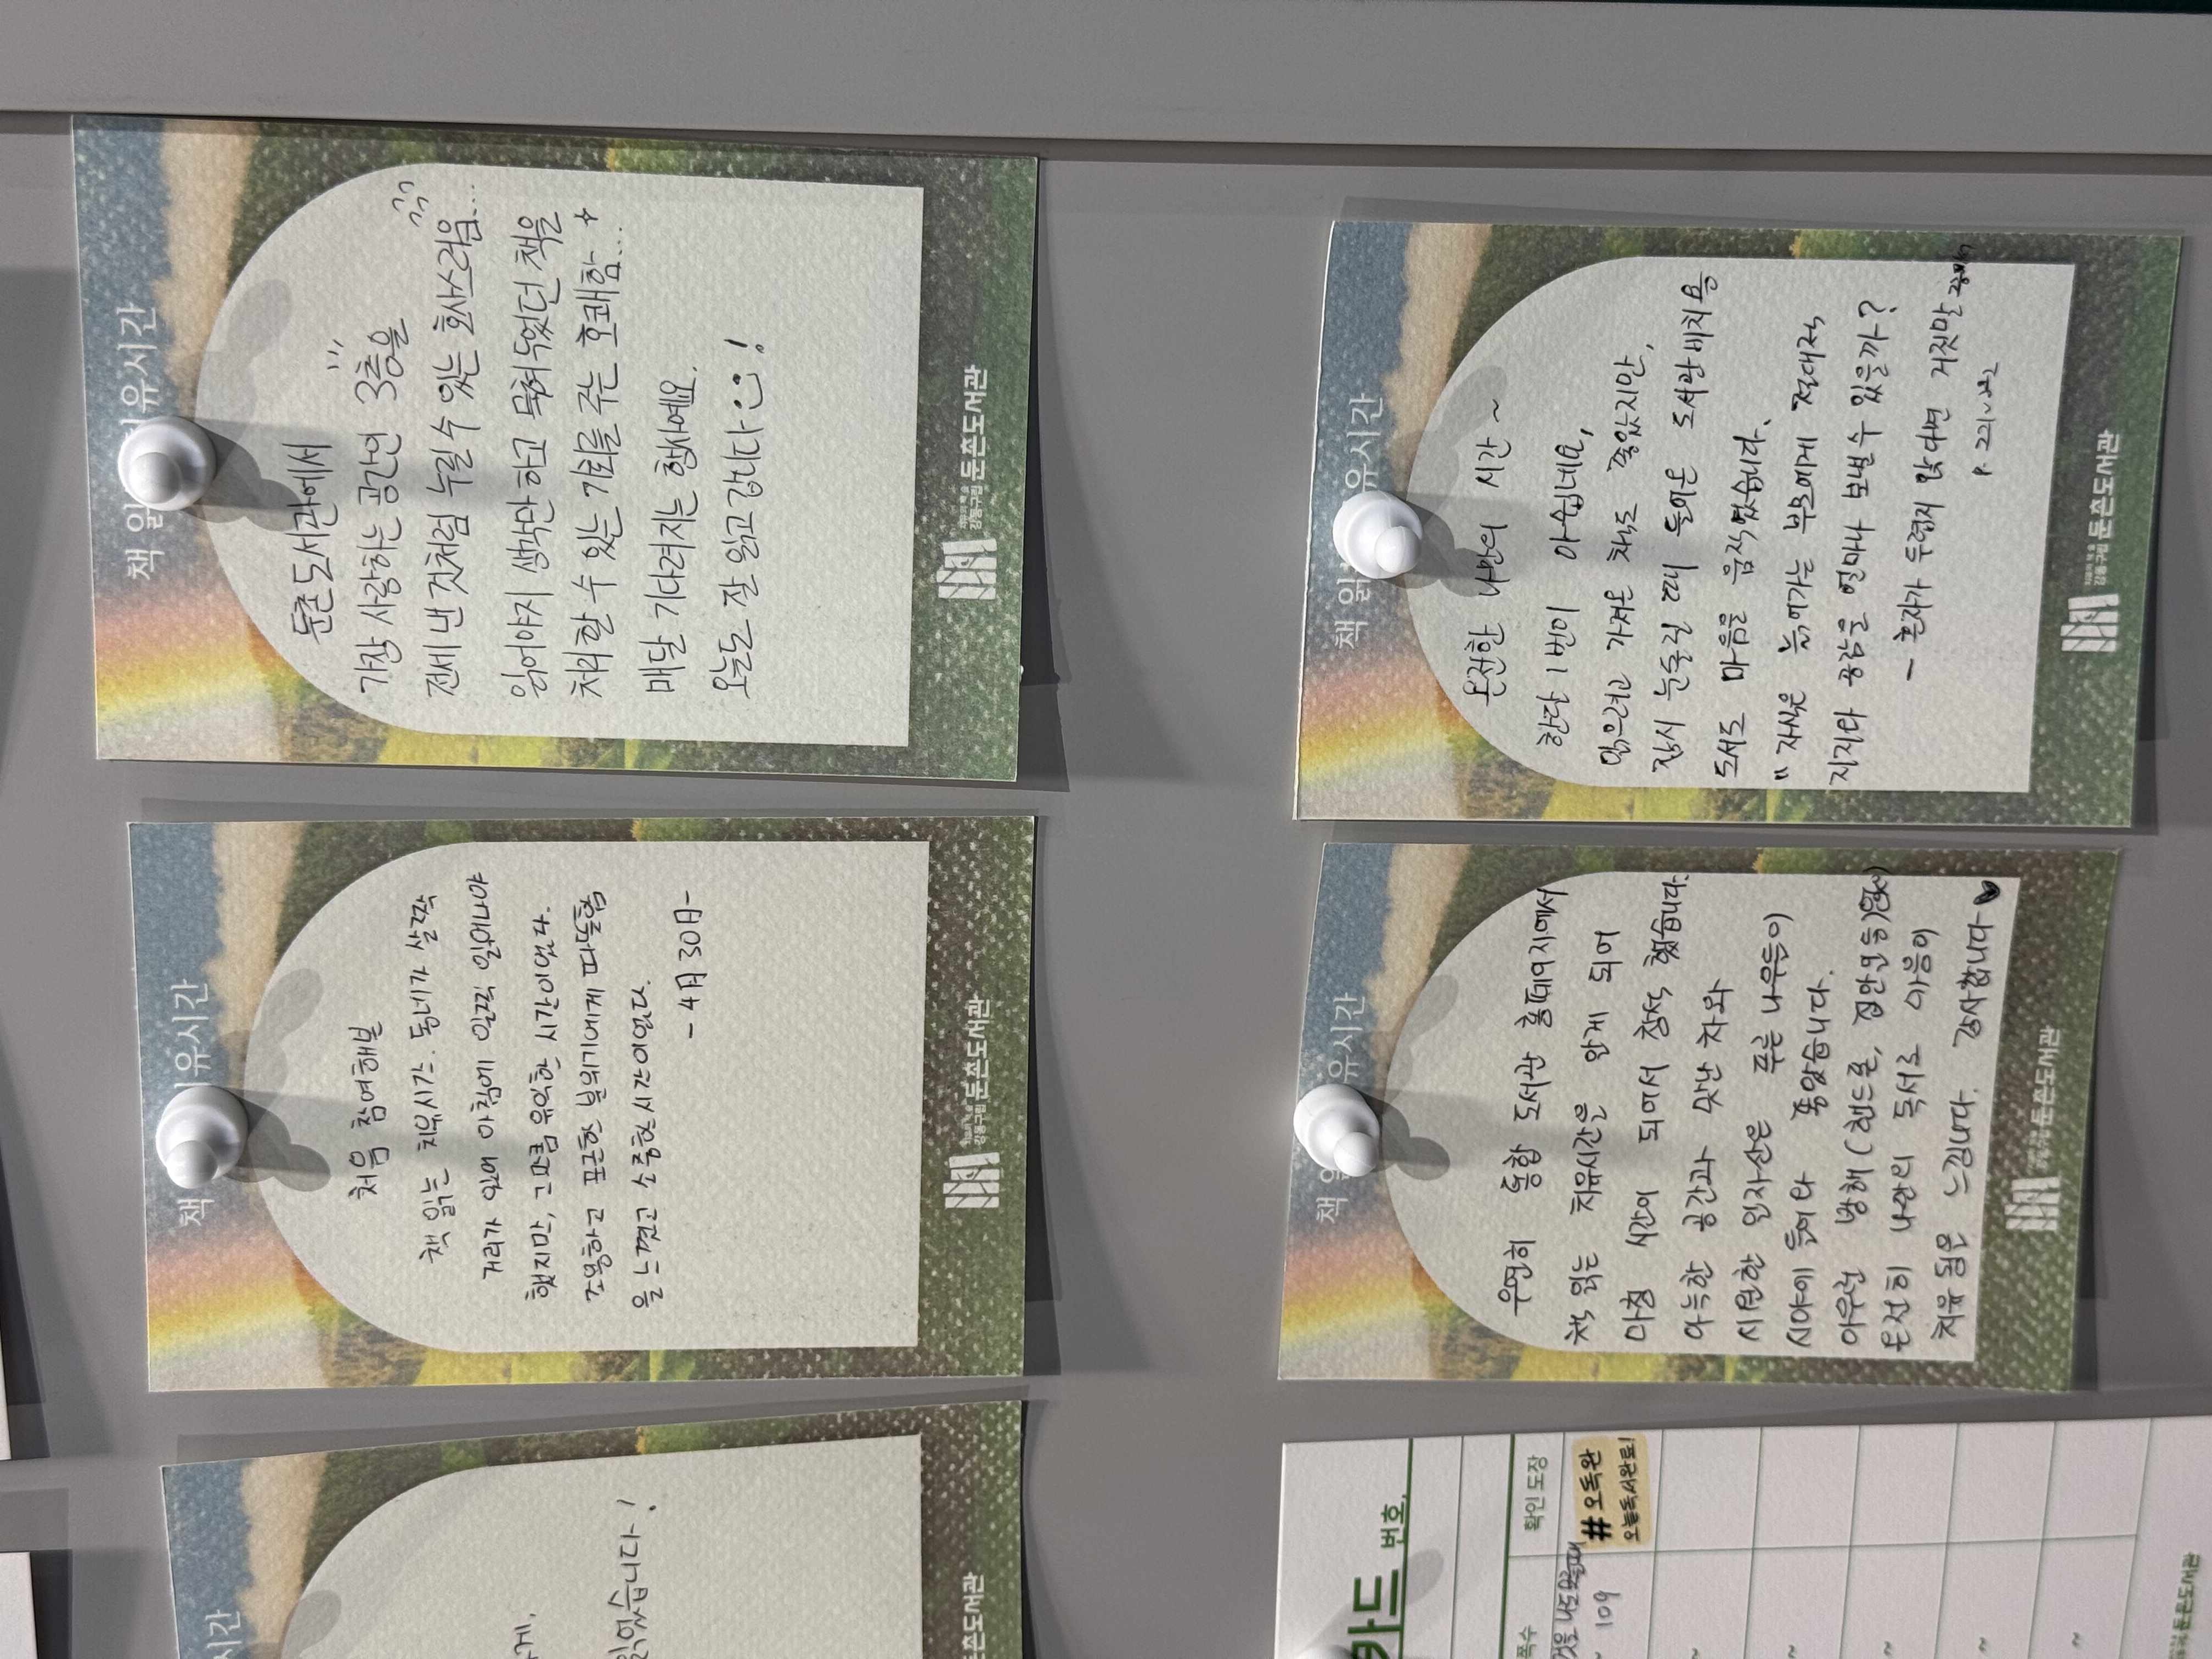 시간
게.
읽었습니다!
둔촌도서관
책 유시간
처음 참여해본
책 읽는 치유시간. 동네가 살짝
거리가 있어 아침에 일찍 일어나야
했지만, 그만큼 유익한 시간이었다.
조용하고 포근한 분위기에게 따뜻함
을 느꼈고 소중한 시간이었다.
- 4月 30日-
강동구립 둔촌도서관
책 읽 유시간
둔촌도서관에서
가장 사랑하는 공간인 3층을
전세 낸 것처럼 누릴 수 있는 호사스러움...
읽어야지 생각만 하고 묵혀두었던 책을
처리할 수 있는 기회를 주는 호쾌함...
매달 기다려지는 행사예요.
오늘도 잘 읽고 갑니다 !
강동구립 둔촌도서관
카드
번호.
쪽수
확인도장
~ 109
#오독완
오늘독서완료!
~
~
~
~
~
둔촌도서관
책 유시간
우연히 통합 도서관 홈페이지에서
책 읽는 치유시간을 알게 되어
마침 시간이 되어서 참석 했습니다.
아늑한 공간과 맛난 차와
시원한 일자산은 푸른 나무들이
시야에 들어와 좋았습니다.
아무런 방해(핸드폰, 집안일 등)없이
온전히 나만의 독서로 마음이
치유됨은 느낍니다. 감사합니다♥
둔촌도서관
책 읽 유시간
온전한 나만의 시간~
한달 1번이 아쉽네요,
읽으려고 가져온 책도 좋았지만,
잠시 눈돌릴 때 들어온 도서관 비치용
도서도 마음을 움직였습니다.
"자식은 늙어가는 부모에게 절대적
지지와 공감을 얼마나 보낼 수 있을까?
- 혼자가 두렵지 않다면 거짓말
P. 221~222
강동구립 둔촌도서관